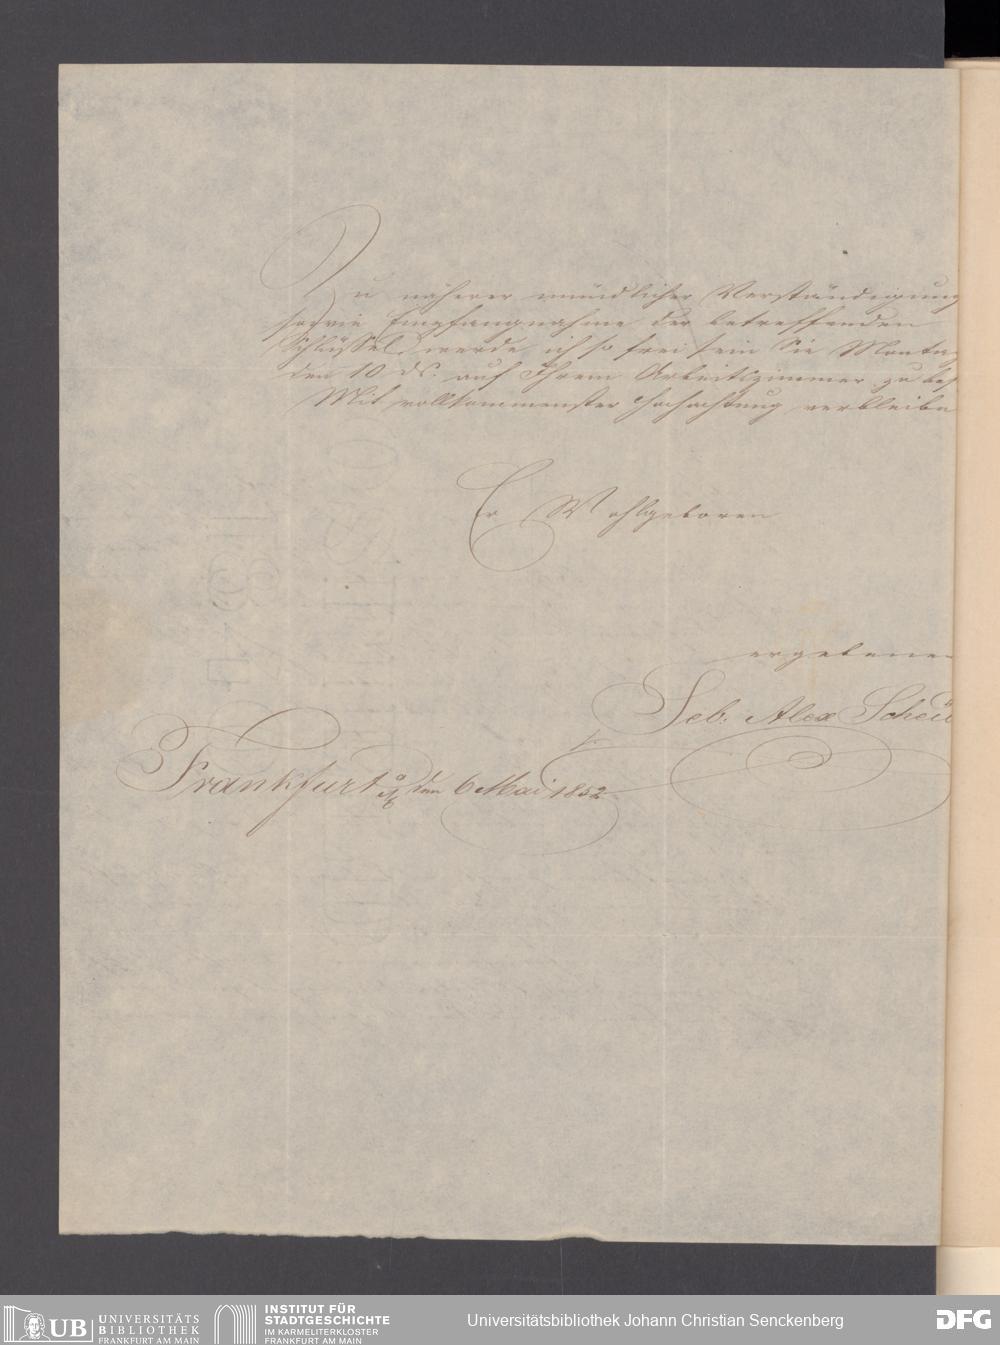 Zu näherer mündlicher Verständigung
sowie Empfangnahme der betreffenden
Schlüssel werde ich so frei sein Sie Montag
den 10 ds. auf Ihrem Arbeitszimmer zu bes
Mit vollkommenster Hochachtung verbleibe
Er Wohlgeboren
ergebener
Seb: Alex Scheid
Frankfurt a/M den 6 Mai 1852
UB UNIVERSITÄTS BIBLIOTHEK FRANKFURT AM MAIN
INSTITUT FÜR STADTGESCHICHTE IM KARMELITERKLOSTER FRANKFURT AM MAIN
Universitätsbibliothek Johann Christian Senckenberg
DFG